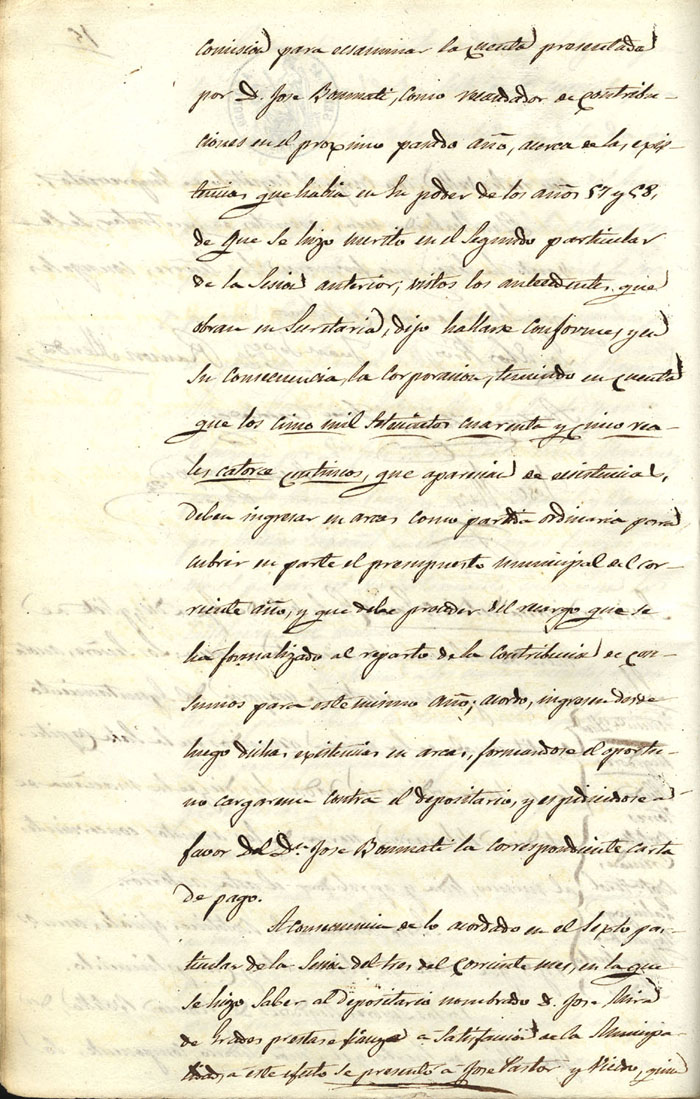 Comision para ecsaminar la cuenta presentada
por D. Jose Bonmati, como recaudador de contribu-
ciones en el procsimo pasado año, acerca de las exis-
tencias que habia en su poder de los años 57 y 58,
de que se hizo merito en el segundo particular
de la sesion anterior; vistos los antecedentes que
obran en Secretaria, dijo hallarse conformes, y en
su consecuencia la corporacion, teniendo en cuenta
que los cinco mil setecientos cuarenta y cinco rea-
les catorce centimos, que aparecian de ecsistencia,
deben ingresar en arcas como partida ordinaria para
cubrir en parte el presupuesto municipal del cor-
riente año, y que debe proceder del recargo que se
ha formalizado al reparto de la contribucion de con-
sumos para este mismo año; acordo, ingresen desde
luego dichas existencias en arcas, formandose el oportu-
no cargareme contra el depositario, y espidiendose a
favor del Dn. Jose Bonmati la correspondiente carta
de pago.
A consecuencia de lo acordado en el sexto par-
ticular de la sesion del tres del corriente mes, en la que
se hizo saber al depositario nombrado D. Jose Mira
de prestase fianza a satisfaccion de la Municipa-
a este efecto se presento a Jose Pastor y quien
15